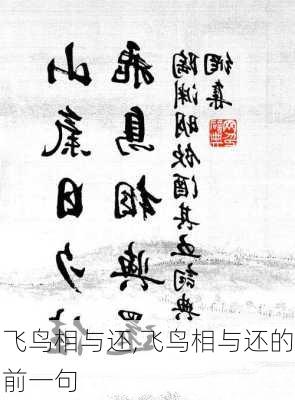 山氣日夕佳
飛鳥相與還
陶渊明饮酒其五詞典
網集
飞鸟相与还,飞鸟相与还的
前一句